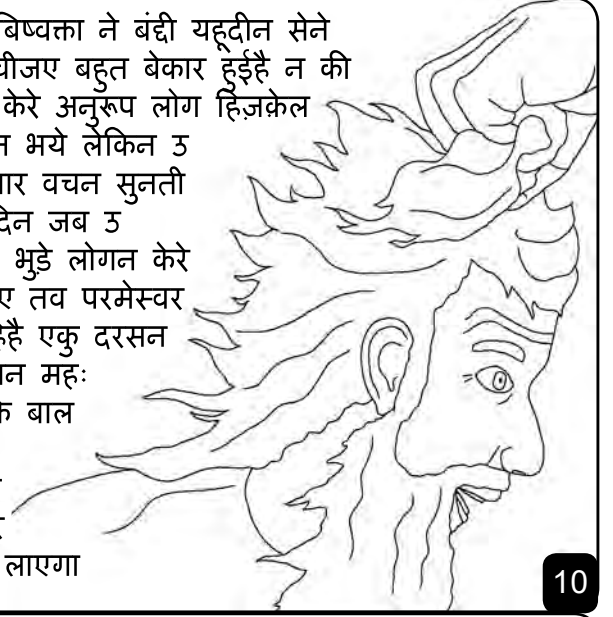 बिष्वक्ता ने बंद्दी यहूदीन सेने
चीजए बहुत बेकार हुईहै न की
केरे अनुरूप लोग हिज़क़ेल
भये लेकिन उ
वचन सुनती
जब उ
भुड़े लोगन केरे
तव परमेस्वर
एकु दरसन
महः
बाल
लाएगा
10